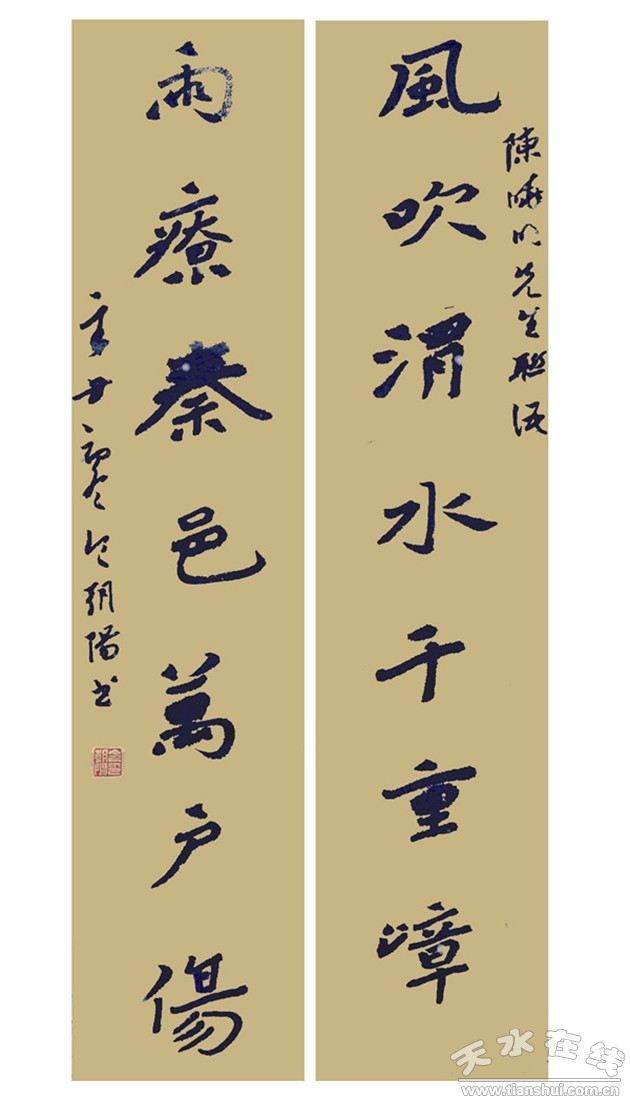 風吹渭水千重嶂
陳曉明先生聯語
雨療秦邑萬户傷
朝陽书
天水在线
www.tianshui.com.cn